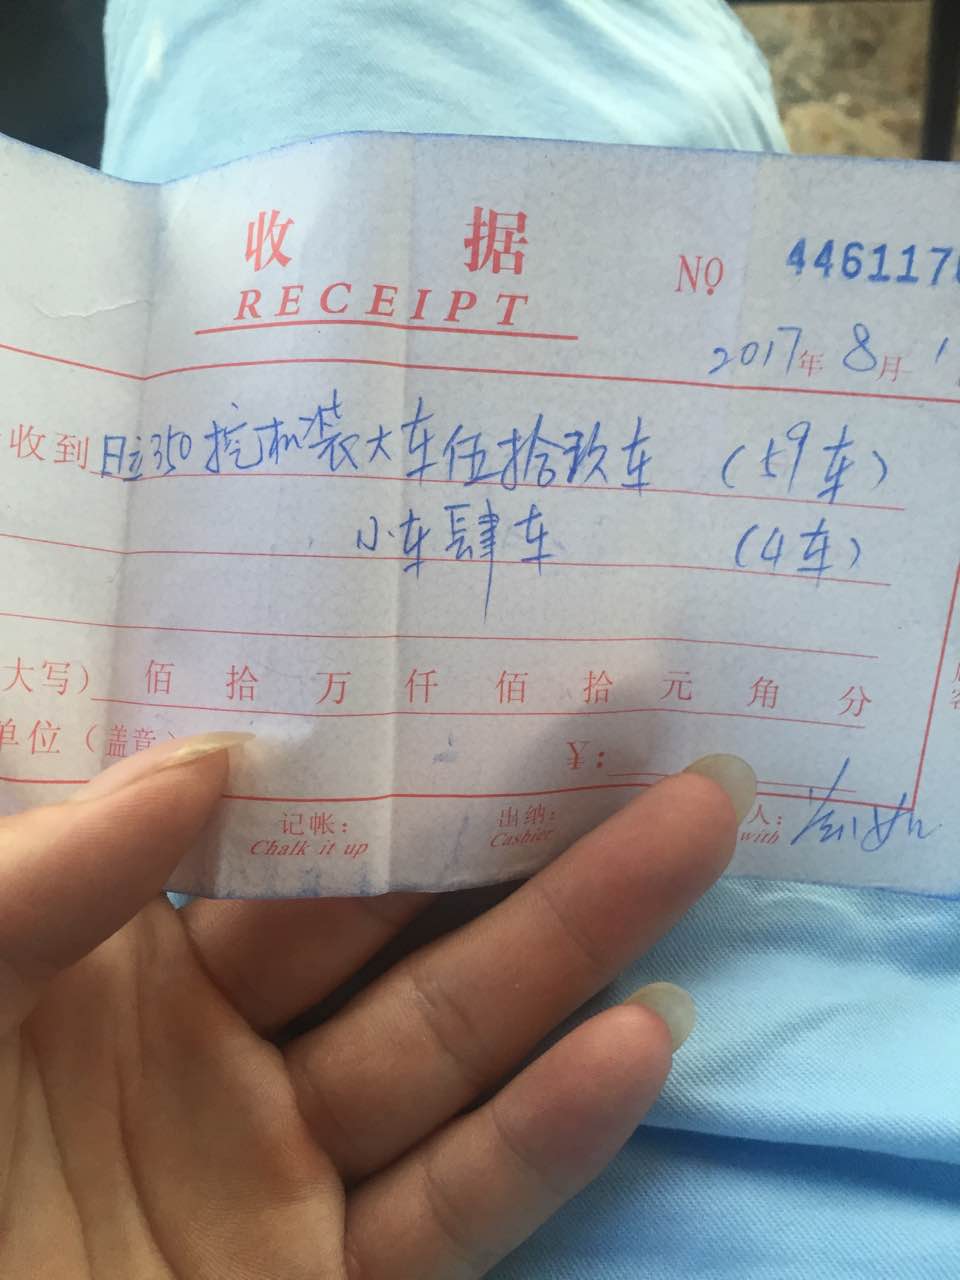 收 据
RECEIPT
NO 446117
2017年8月1
收到日立350挖机装大车伍拾玖车 (59车)
小车肆车 (4车)
大写) 佰 拾 万 仟 佰 拾 元 角 分
单位(盖章) ¥:
记帐: 出纳: 人:
Chalk it up Cashier with